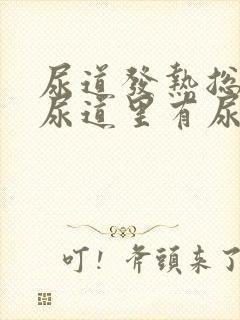 尿道發熱總
尿道里有尿
叮！斧頭来了